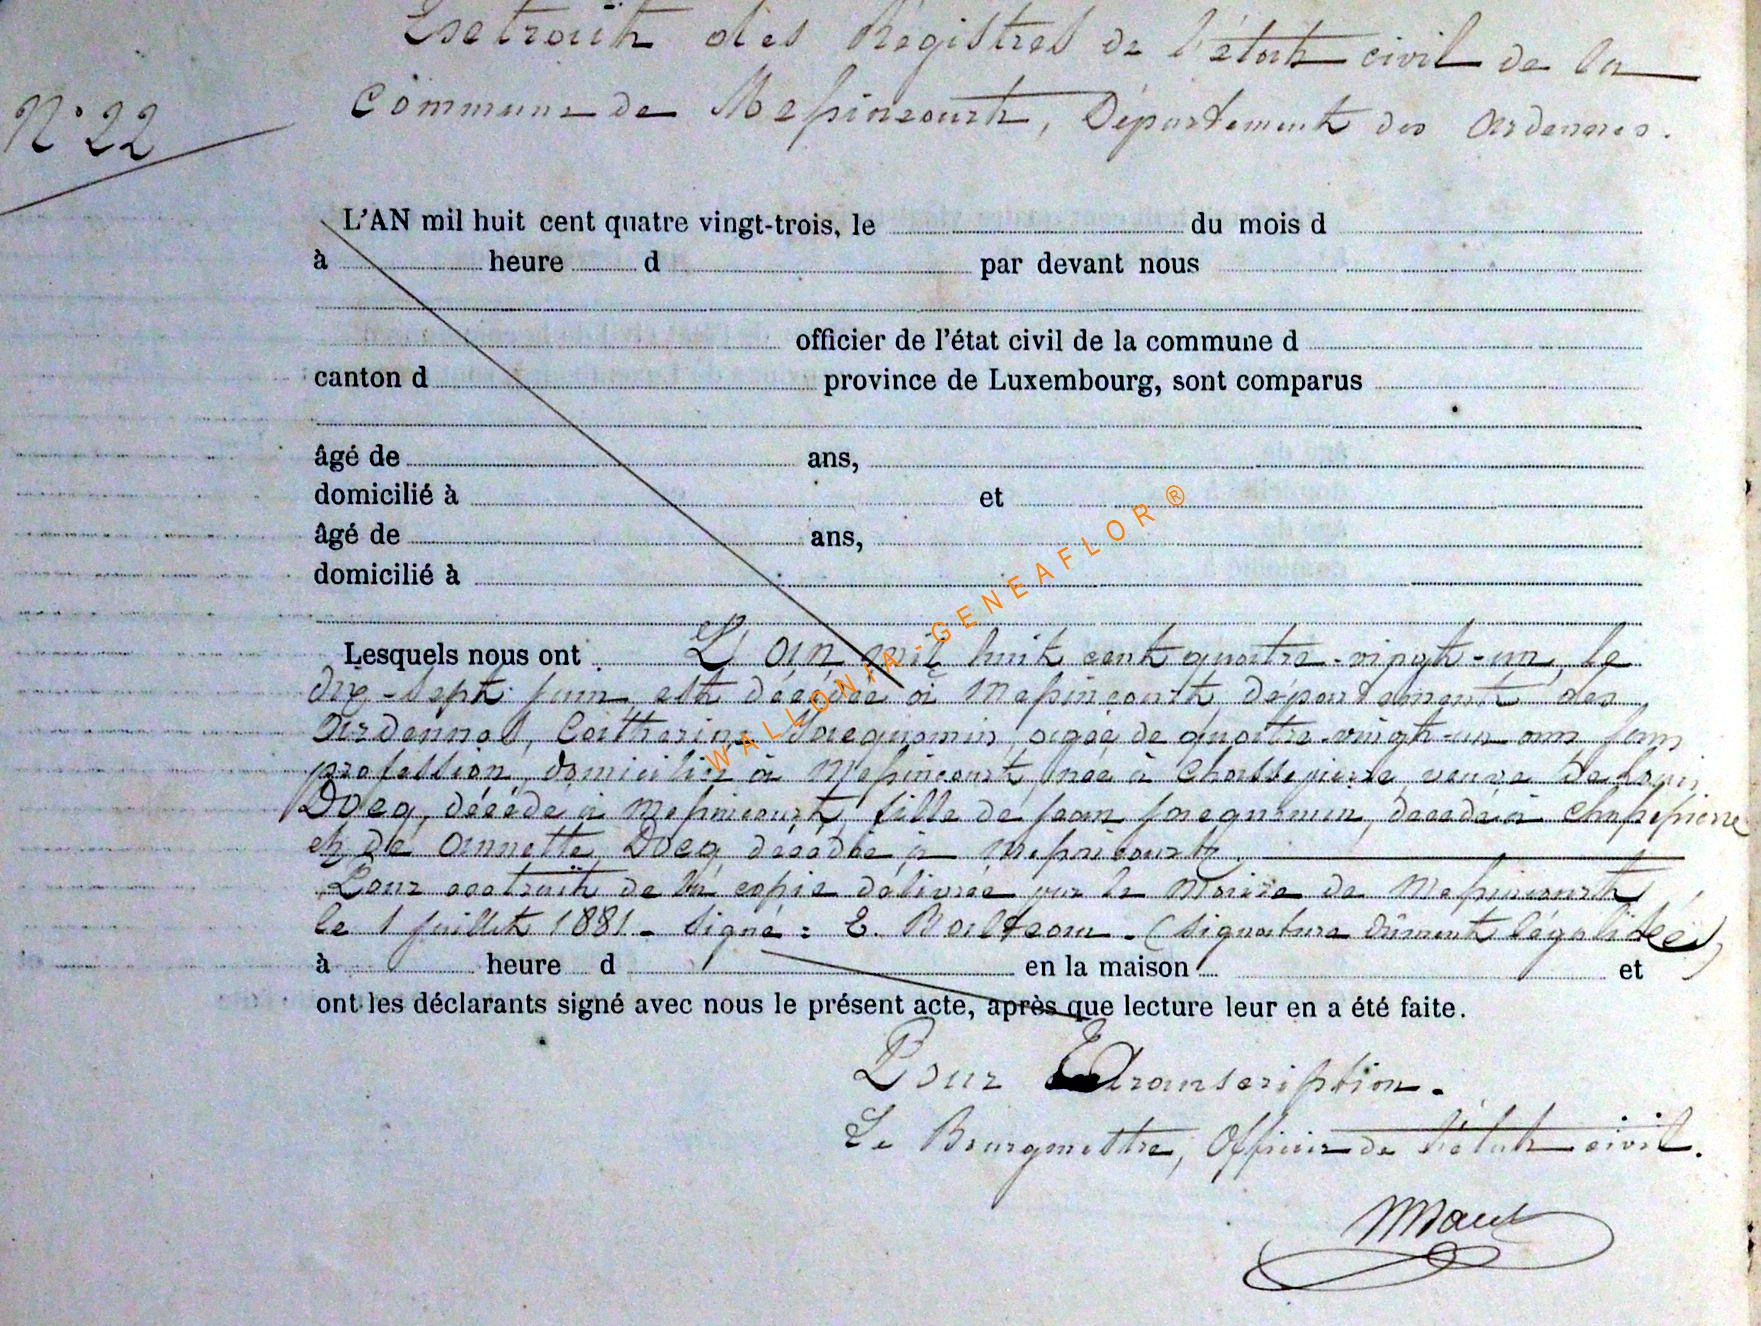 Extrait des Registres de l'état civil de la
N° 22
Commune de Messincourt, Département des Ardennes.
L'AN mil huit cent quatre vingt-trois, le du mois d
à heure d par devant nous
officier de l'état civil de la commune d
canton d province de Luxembourg, sont comparus
âgé de ans,
domicilié à et
âgé de ans,
domicilié à
WALLONIA-GENEAFLOR®
Lesquels nous ont L'an mil huit cent quatre-vingt-un, le
dix-sept juin, est décédée à Messincourt, département des
Ardennes, Catherine Jacquemin, agée de quatre-vingt-un ans sans
profession, domiciliée à Messincourt, née à Chassepierre, veuve de Louis
Docq, décédé à Messincourt, fille de Jean Jacquemin, décédé à Chassepierre
et de Annette Docq décédée à Messincourt.
Pour extrait de la copie délivrée par le Maire de Messincourt
le 1 juillet 1881. Signé: E. (signature dûment légalisée)
à heure d en la maison et
ont les déclarants signé avec nous le présent acte, après que lecture leur en a été faite.
Pour transcription.
Le Bourgmestre, Officier de l'état civil.